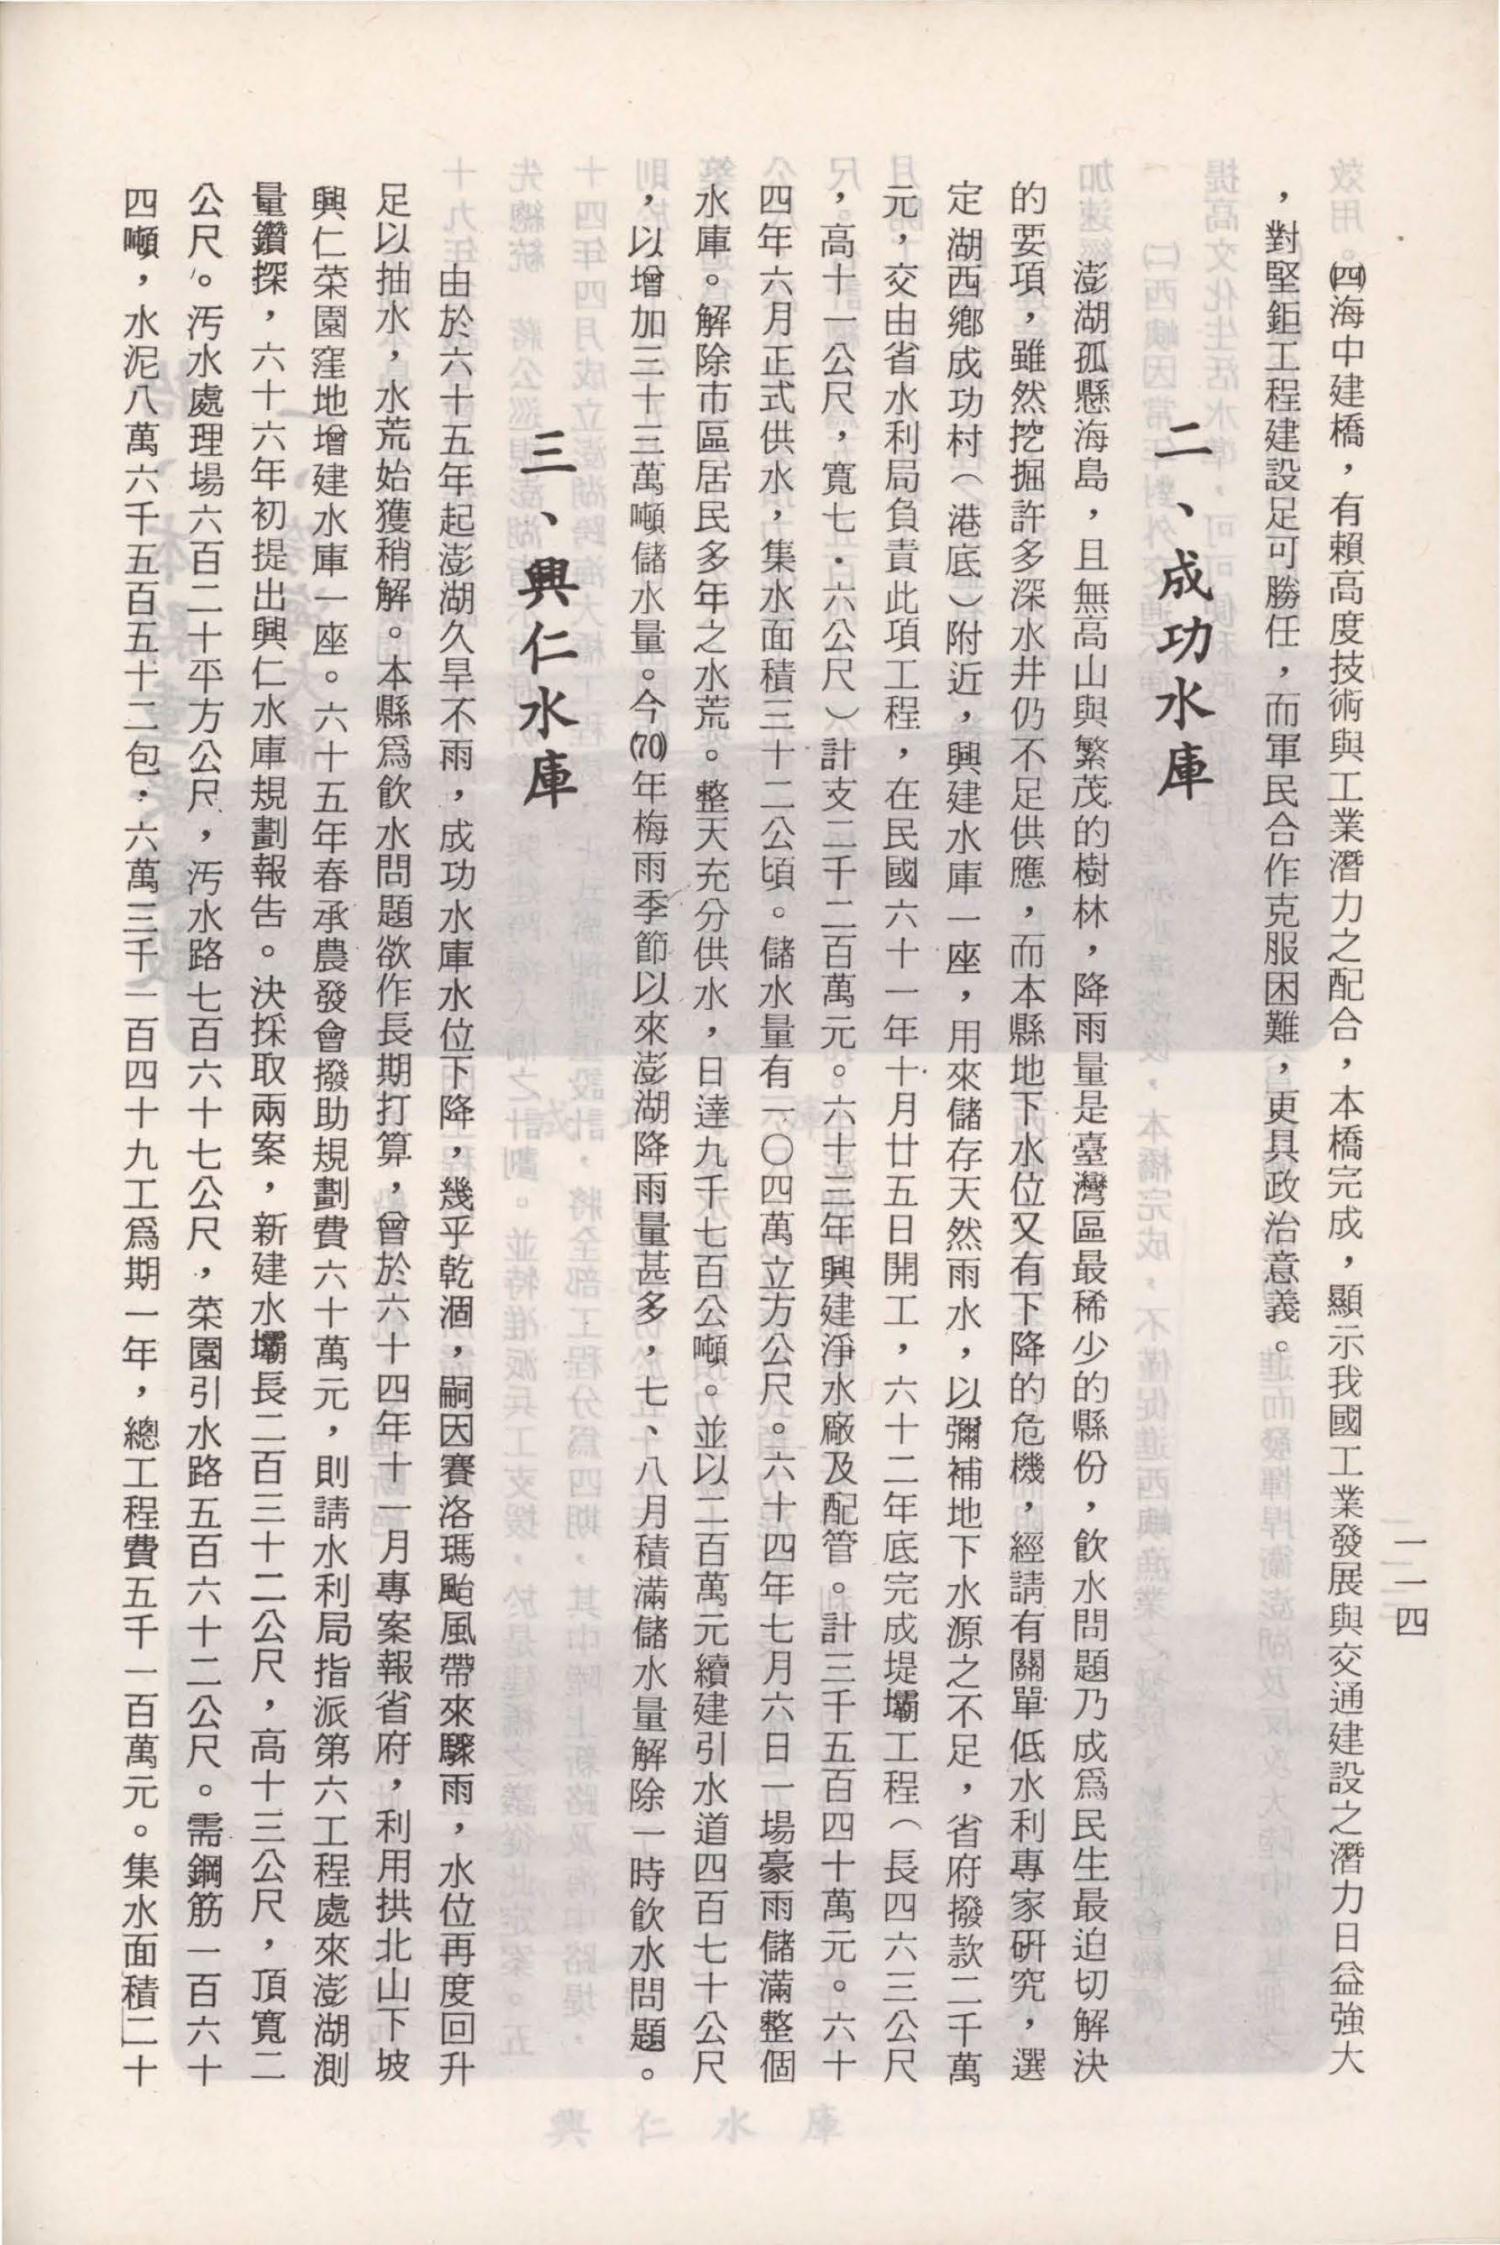 一一四
㈣海中建橋，有賴高度技術與工業潛力之配合，本橋完成，顯示我國工業發展與交通建設之潛力日益強大
，對堅鉅工程建設足可勝任，而軍民合作克服困難，更具政治意義。
二、成功水庫
澎湖孤懸海島，且無高山與繁茂的樹林，降雨量是臺灣區最稀少的縣份，飲水問題乃成爲民生最迫切解決
的要項，雖然挖掘許多深水井仍不足供應，而本縣地下水位又有下降的危機，經請有關單低水利專家研究，選
定湖西鄉成功村（港底）附近，興建水庫一座，用來儲存天然雨水，以彌補地下水源之不足，省府撥款二千萬
元，交由省水利局負責此項工程，在民國六十一年十月廿五日開工，六十二年底完成堤壩工程（長四六三公尺
，高十一公尺，寬七．六公尺）計支二千二百萬元。六十三年興建淨水廠及配管。計三千五百四十萬元。六十
四年六月正式供水，集水面積三十二公頃。儲水量有一〇四萬立方公尺。六十四年七月六日一場豪雨儲滿整個
水庫。解除市區居民多年之水荒。整天充分供水，日達九千七百公噸。並以二百萬元續建引水道四百七十公尺
，以增加三十三萬噸儲水量。今(70)年梅雨季節以來澎湖降雨量甚多，七、八月積滿儲水量解除一時飲水問題。
三、興仁水庫
由於六十五年起澎湖久旱不雨，成功水庫水位下降，幾乎乾涸，嗣因賽洛瑪颱風帶來驟雨，水位再度回升
足以抽水，水荒始獲稍解。本縣爲飲水問題欲作長期打算，曾於六十四年十一月專案報省府，利用拱北山下坡
興仁菜園窪地增建水庫一座。六十五年春承農發會撥助規劃費六十萬元，則請水利局指派第六工程處來澎湖測
量鑽探，六十六年初提出興仁水庫規劃報告。決採取兩案，新建水壩長二百三十二公尺，高十三公尺，頂寬二
公尺。汚水處理場六百二十平方公尺，汚水路七百六十七公尺，菜園引水路五百六十二公尺。需鋼筋一百六十
四噸，水泥八萬六千五百五十二包，六萬三千一百四十九工爲期一年，總工程費五千一百萬元。集水面積二十